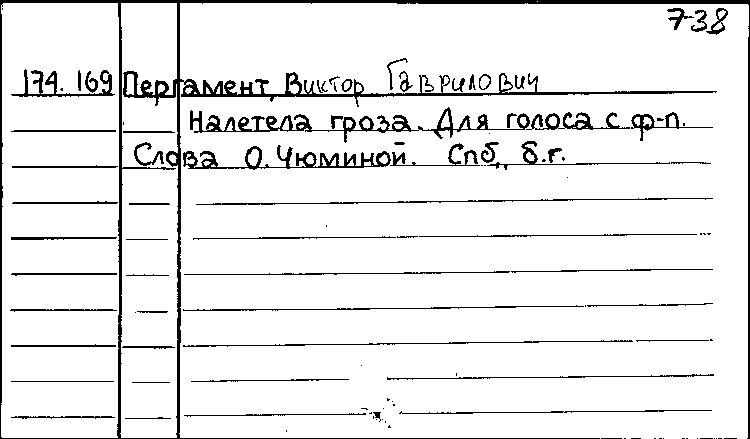 738
174.169 Пергамент, Виктор Гаврилович
Налетела гроза. Для голоса с ф-п.
Слова О. Чюминой. Спб., б.г.